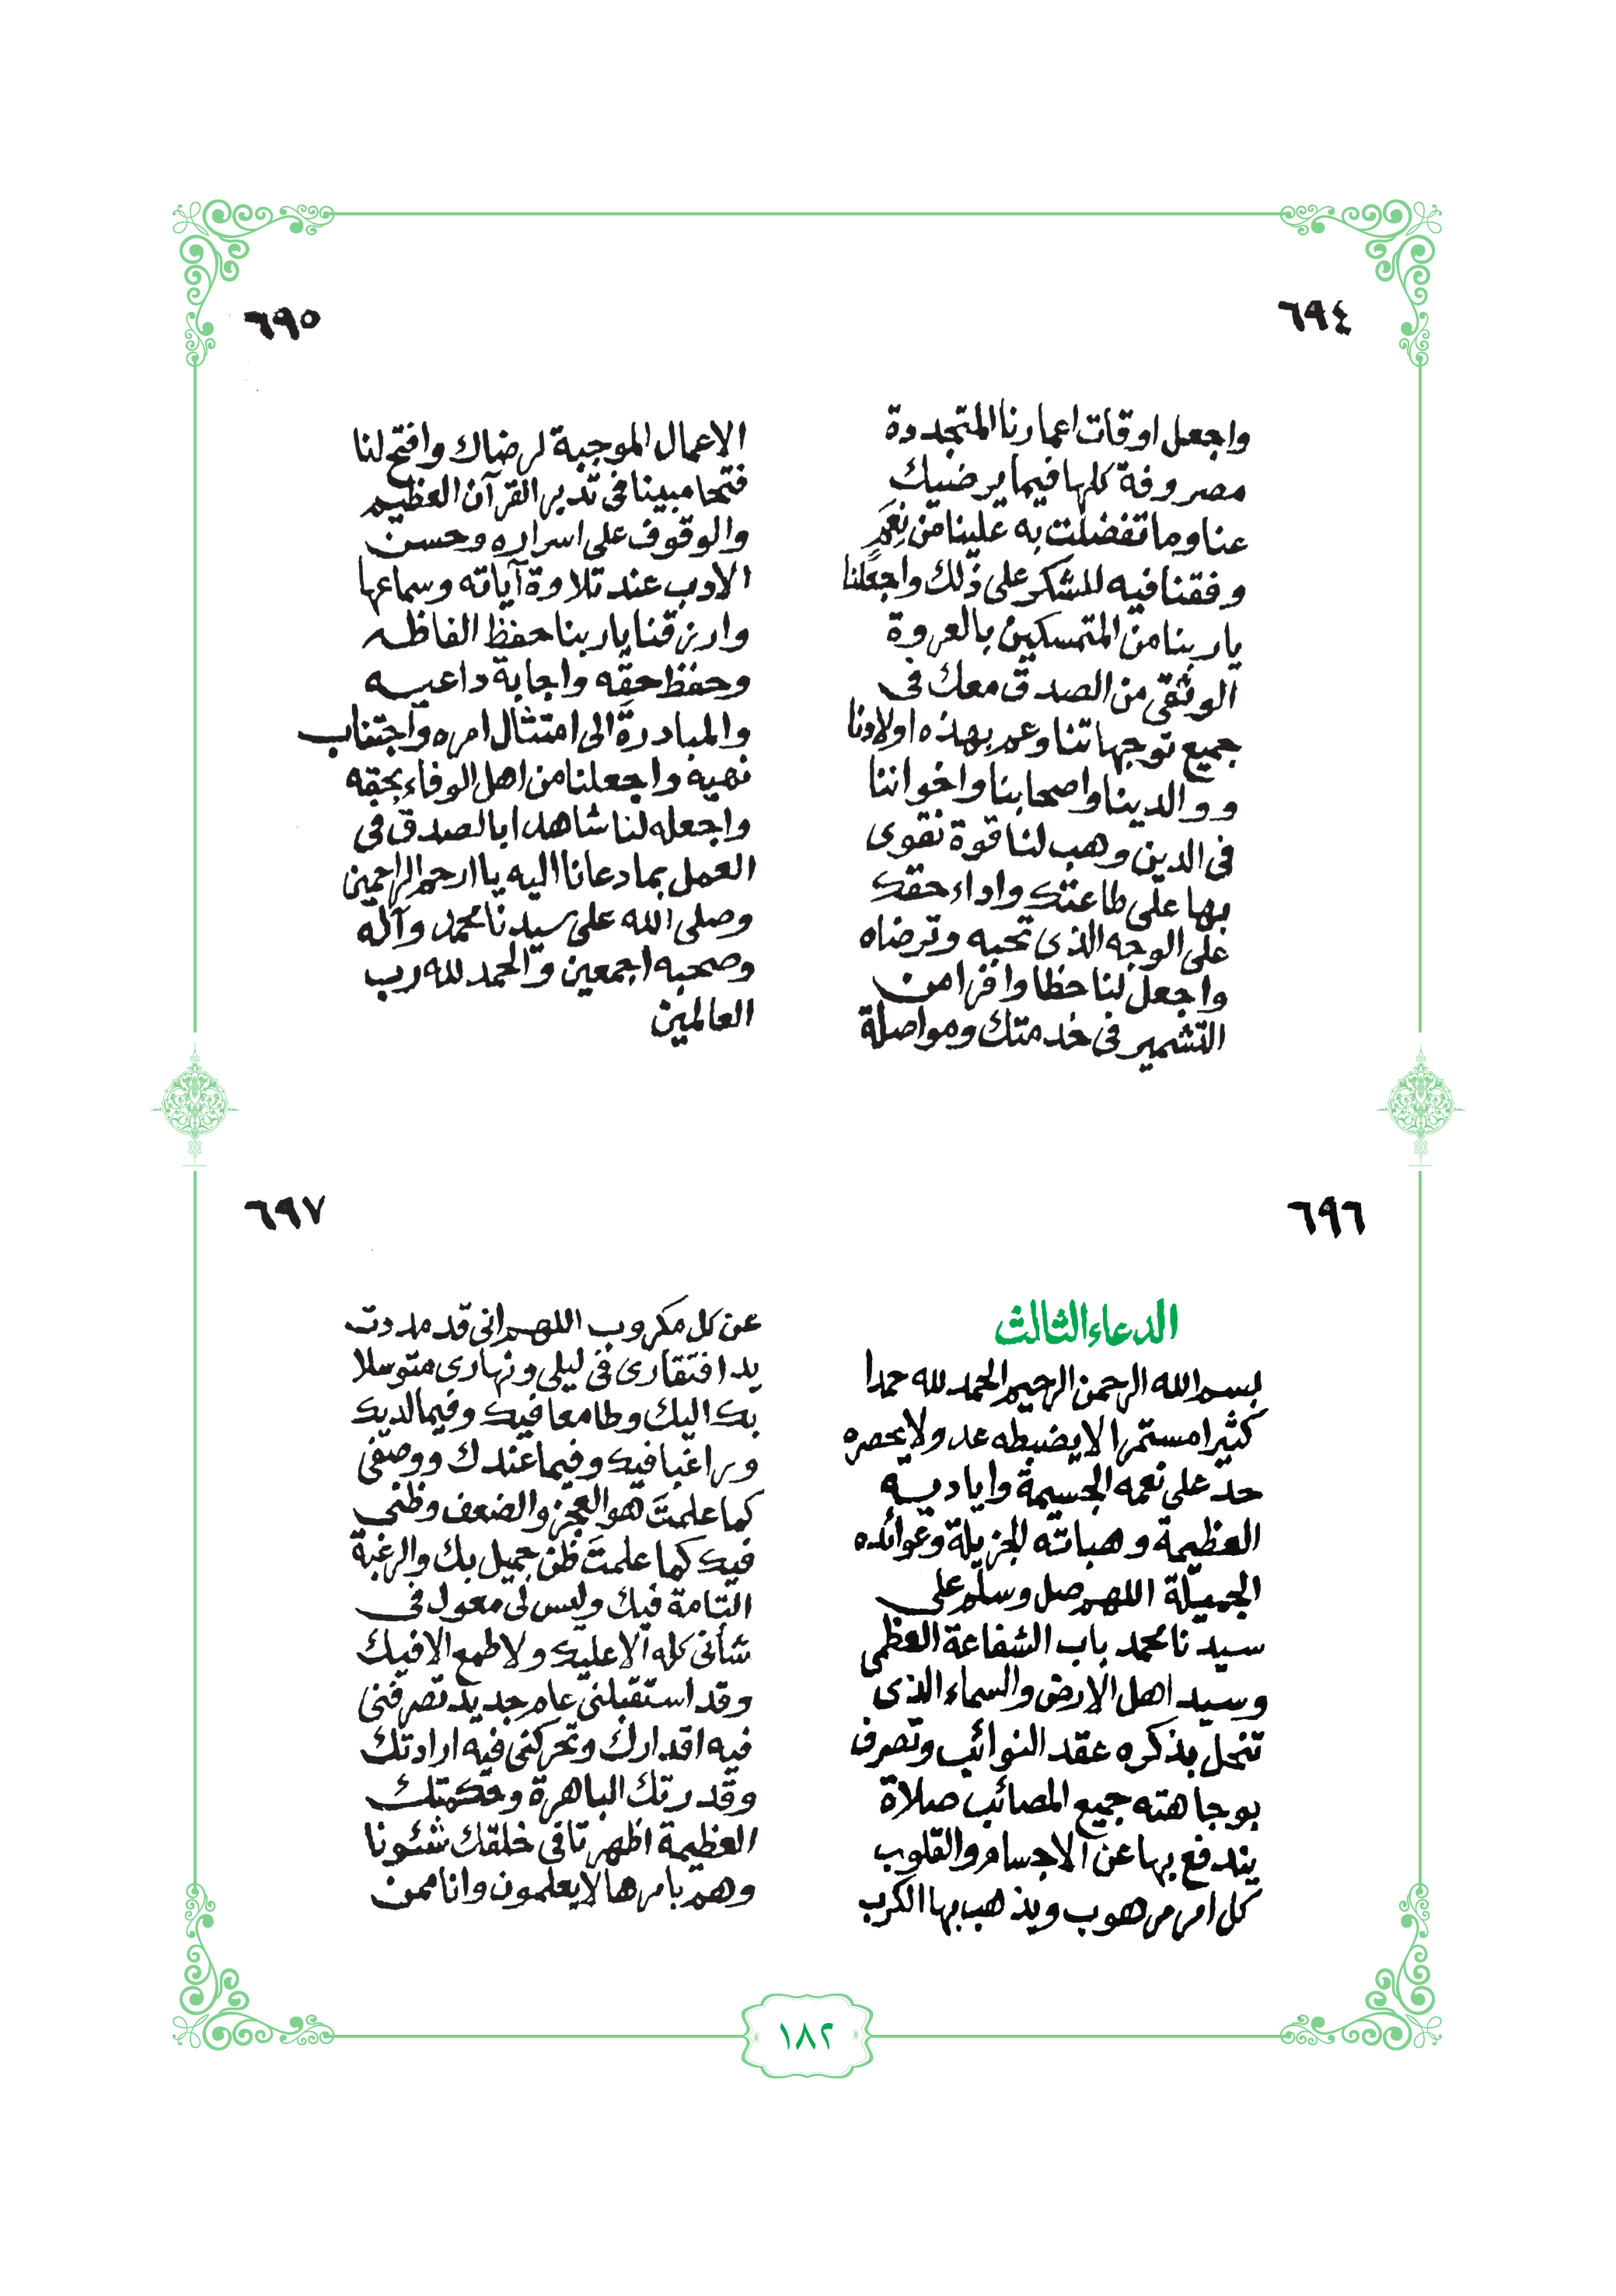 ٦٩٤
واجعل اوقات اعمارنا المتجددة
مصروفة كلها فيما يرضيك
عنا وما تفضلت به علينا من نِعَمٍ
وفقنا فيه للشكر على ذلك واجعلنا
يا ربنا من المتمسكين بالعروة
الوثقى من الصدق معك فى
جميع توجهاتنا وعم بهذه اولادنا
ووالدينا واصحابنا واخواننا
فى الدين وهب لنا قوة نقوى
بها على طاعتك واداء حقك
على الوجه الذى تحبه وترضاه
واجعل لنا حظا وافرا من
التشمير فى خدمتك ومواصلة
٦٩٥
الاعمال الموجبة لرضاك وافتح لنا
فتحا مبينا فى تدبر القرآن العظيم
والوقوف على اسراره وحسن
الادب عند تلاوة آياته وسماعها
وارزقنا يا ربنا حفظ الفاظه
وحفظ حقه واجابة داعيه
والمبادرة الى امتثال امره واجتناب
نهيه واجعلنا من اهل الوفاء بحقه
واجعله لنا شاهدا بالصدق فى
العمل بما دعانا اليه يا ارحم الراحمين
وصلى الله على سيدنا محمد وآله
وصحبه اجمعين والحمد لله رب
العالمين
٦٩٦
الدعاء الثالث
بسم الله الرحمن الرحيم الحمد لله حمدا
كثيرا مستمرا لا يضبطه عد ولا يحصره
حد على نعمه الجسيمة واياديه
العظيمة وهباته الجزيلة وعوائده
الجميلة اللهم صل وسلم على
سيدنا محمد باب الشفاعة العظمى
وسيد اهل الارض والسماء الذى
تنحل بذكره عقد النوائب وتصرف
بوجاهته جميع المصائب صلاة
يندفع بها عن الاجسام والقلوب
كل امر مرهوب ويذهب بها الكرب
٦٩٧
عن كل مكروب اللهم انى قد مددت
يد افتقارى فى ليلى ونهارى متوسلا
بك اليك وطامعا فيك وفيما لديك
وراغبا فيك وفيما عندك ووصفى
كما علمتَ هو العجز والضعف وظنى
فيك كما علمتَ ظن جميل بك والرغبة
التامة فيك وليس لى معول فى
شأنى كله الا عليك ولا طمع الا فيك
وقد استقبلنى عام جديد تصرفنى
فيه اقدارك وتحركنى فيه ارادتك
وقدرتك الباهرة وحكمتك
العظيمة اظهرتا فى خلقك شئونا
وهم بامرها لا يعلمون وانا ممن
١٨٢